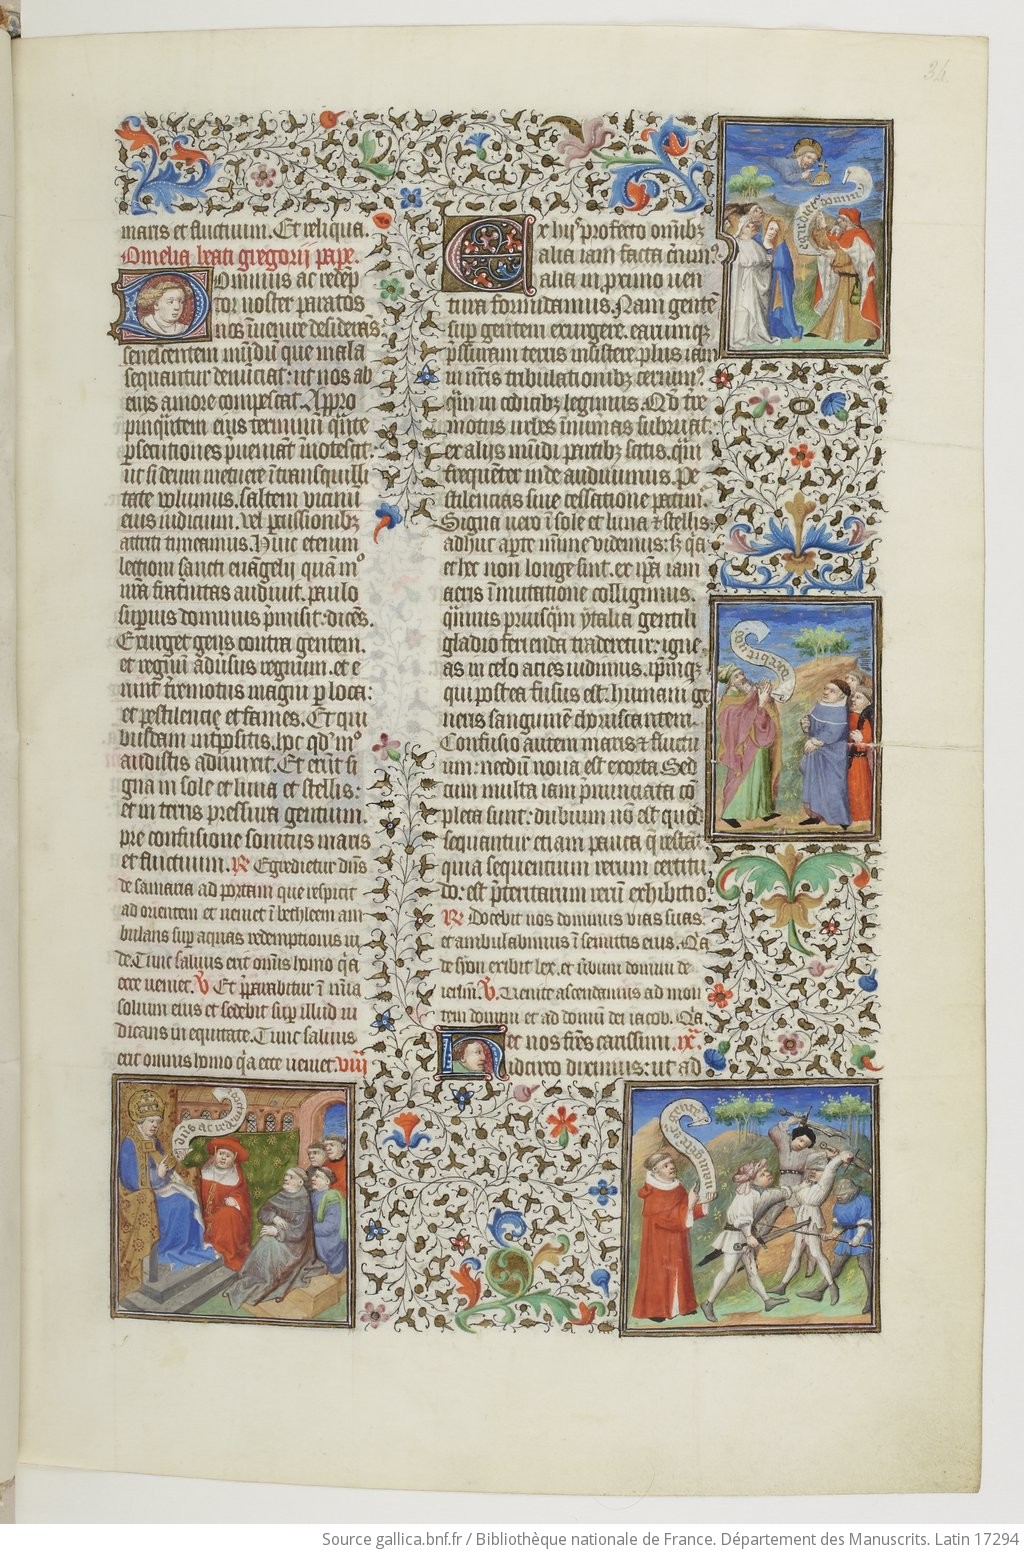 34
maris et fluctuum. Et reliqua.
Omelia beati gregorii pape.
Dominus ac redēp
tor noster paratos
nos īuenire desiderās
senescentem mūdū que mala
sequantur denūciat: ut nos ab
eius amore compescat. Appro
pinqūtem eius terminū qūte
ꝑsecutiones ꝑueniāt īnotescit:
ut si deum metuere ī tranquilli
tate volumus. saltem vicinū
eius iudicium. vel ꝑcussionibꝫ
attriti timeamus. Huic etenim
lectioni sancti euāgelij quā mo
ura fraternitas audiuit. paulo
superius dominus p̄misit: dicēs.
Exurget gens contra gentem.
et regnū aduersus regnum. et e
runt t̄remotus magni per loca:
et pestilencię et fames. Et qui
busdam īterpositis. hoc qd' mo
audistis adiunxit. Et erūt si
gna in sole et luna et stellis:
et in terris pressura gentium.
pre confusione sonitus maris
et fluctuum. R Egredietur dn̄s
de samaria ad portam que respicit
ad orientem et veniet ī bethleem am
bulans sup̄ aquas redemptionis iu
de. Tunc saluus erit omīs homo q̄a
ecce veniet. V Et p̄parabitur ī mīa
solium eius et sedebit sup̄ illud iu
dicans in equitate. Tunc saluus
erit omnis homo q̄a ecce veniet. viij
Ex hijs profecto omibꝫ
alia iam facta cernim?
alia in proximo uen
tura formidamus. Nam gentē
sup̄ gentem exurgere. earumqꝫ
p̄ssuram terris insistere. plus iam
in nr̄is tribulationibꝫ cernim?
q̄m in codicibꝫ legimus. Qd t̄re
motus urbes īnumeras subruat:
ex alijs mūdi partibꝫ scitis. q̄m
frequēter inde audiuimus. Pe
stilencias sine cessatione patim.
Signa uero ī sole et luna et stellis
adhuc aperte mīnime videmus: sꝫ q̄a
et hec non longe sint. ex ip̄a iam
aeris ī mutatione colligimus.
q̄muis priusq̄m ytalia gentili
gladio ferienda traderetur: igne
as in celo acies uidimus. ip̄mqꝫ
qui postea fusus est: humani ge
neris sanguinē choruscantem.
Confusio autem maris et fluctu
um: necdū noua est exorta. Sed
cum multa iam p̄nunciata cō
pleta sunt: dubium nō est quod
sequantur etiam pauca q̄ restāt
quia sequentium rerum certitu
do: est p̄teritarum rerū exhibitio.
R Docebit nos dominus vias suas.
et ambulabimus ī semitis eius. Q̄a
de syon exibit lex. et v̄bum domini de
ierl'm. V. Uenite ascendamus ad mon
tem domini et ad domū dei iacob. Q̄a.
Hec nos fr̄es carissimi. ix.
idcirco diximus: ut ad
docebit nos
Source gallica.bnf.fr / Bibliothèque nationale de France. Département des Manuscrits. Latin 17294